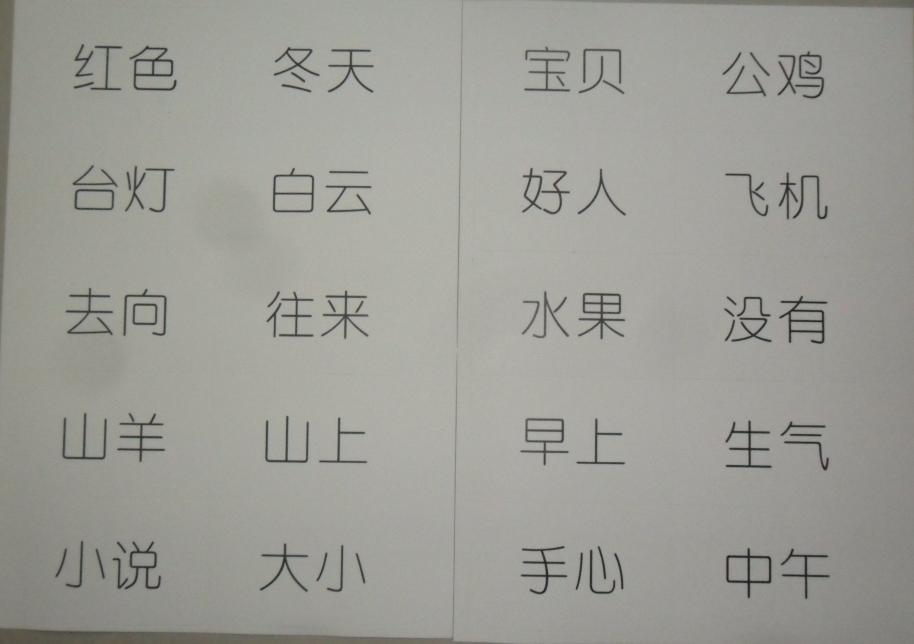 红色 冬天
台灯 白云
去向 往来
山羊 山上
小说 大小
宝贝 公鸡
好人 飞机
水果 没有
早上 生气
手心 中午